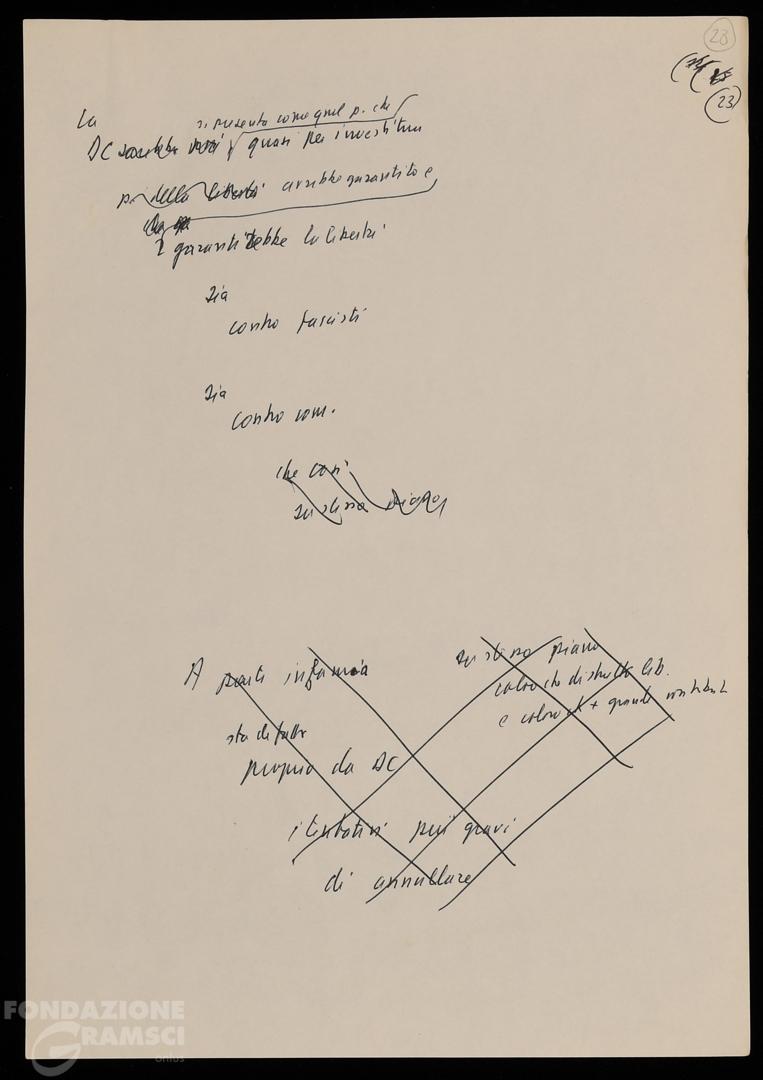 23
(23)
La
si presenta come quel p. che
DC sarebbe quasi per investitura
p. della libertà avrebbe garantito e
garantirebbe la libertà
sia
contro fascisti
sia
contro com.
che così
su stesso piano
A parte infamia
su stesso piano
coloro che distrutto lib.
e coloro + grande contributo
sta di fatto
proprio da DC
i tentativi più gravi
di annullare
FONDAZIONE
GRAMSCI
onlus